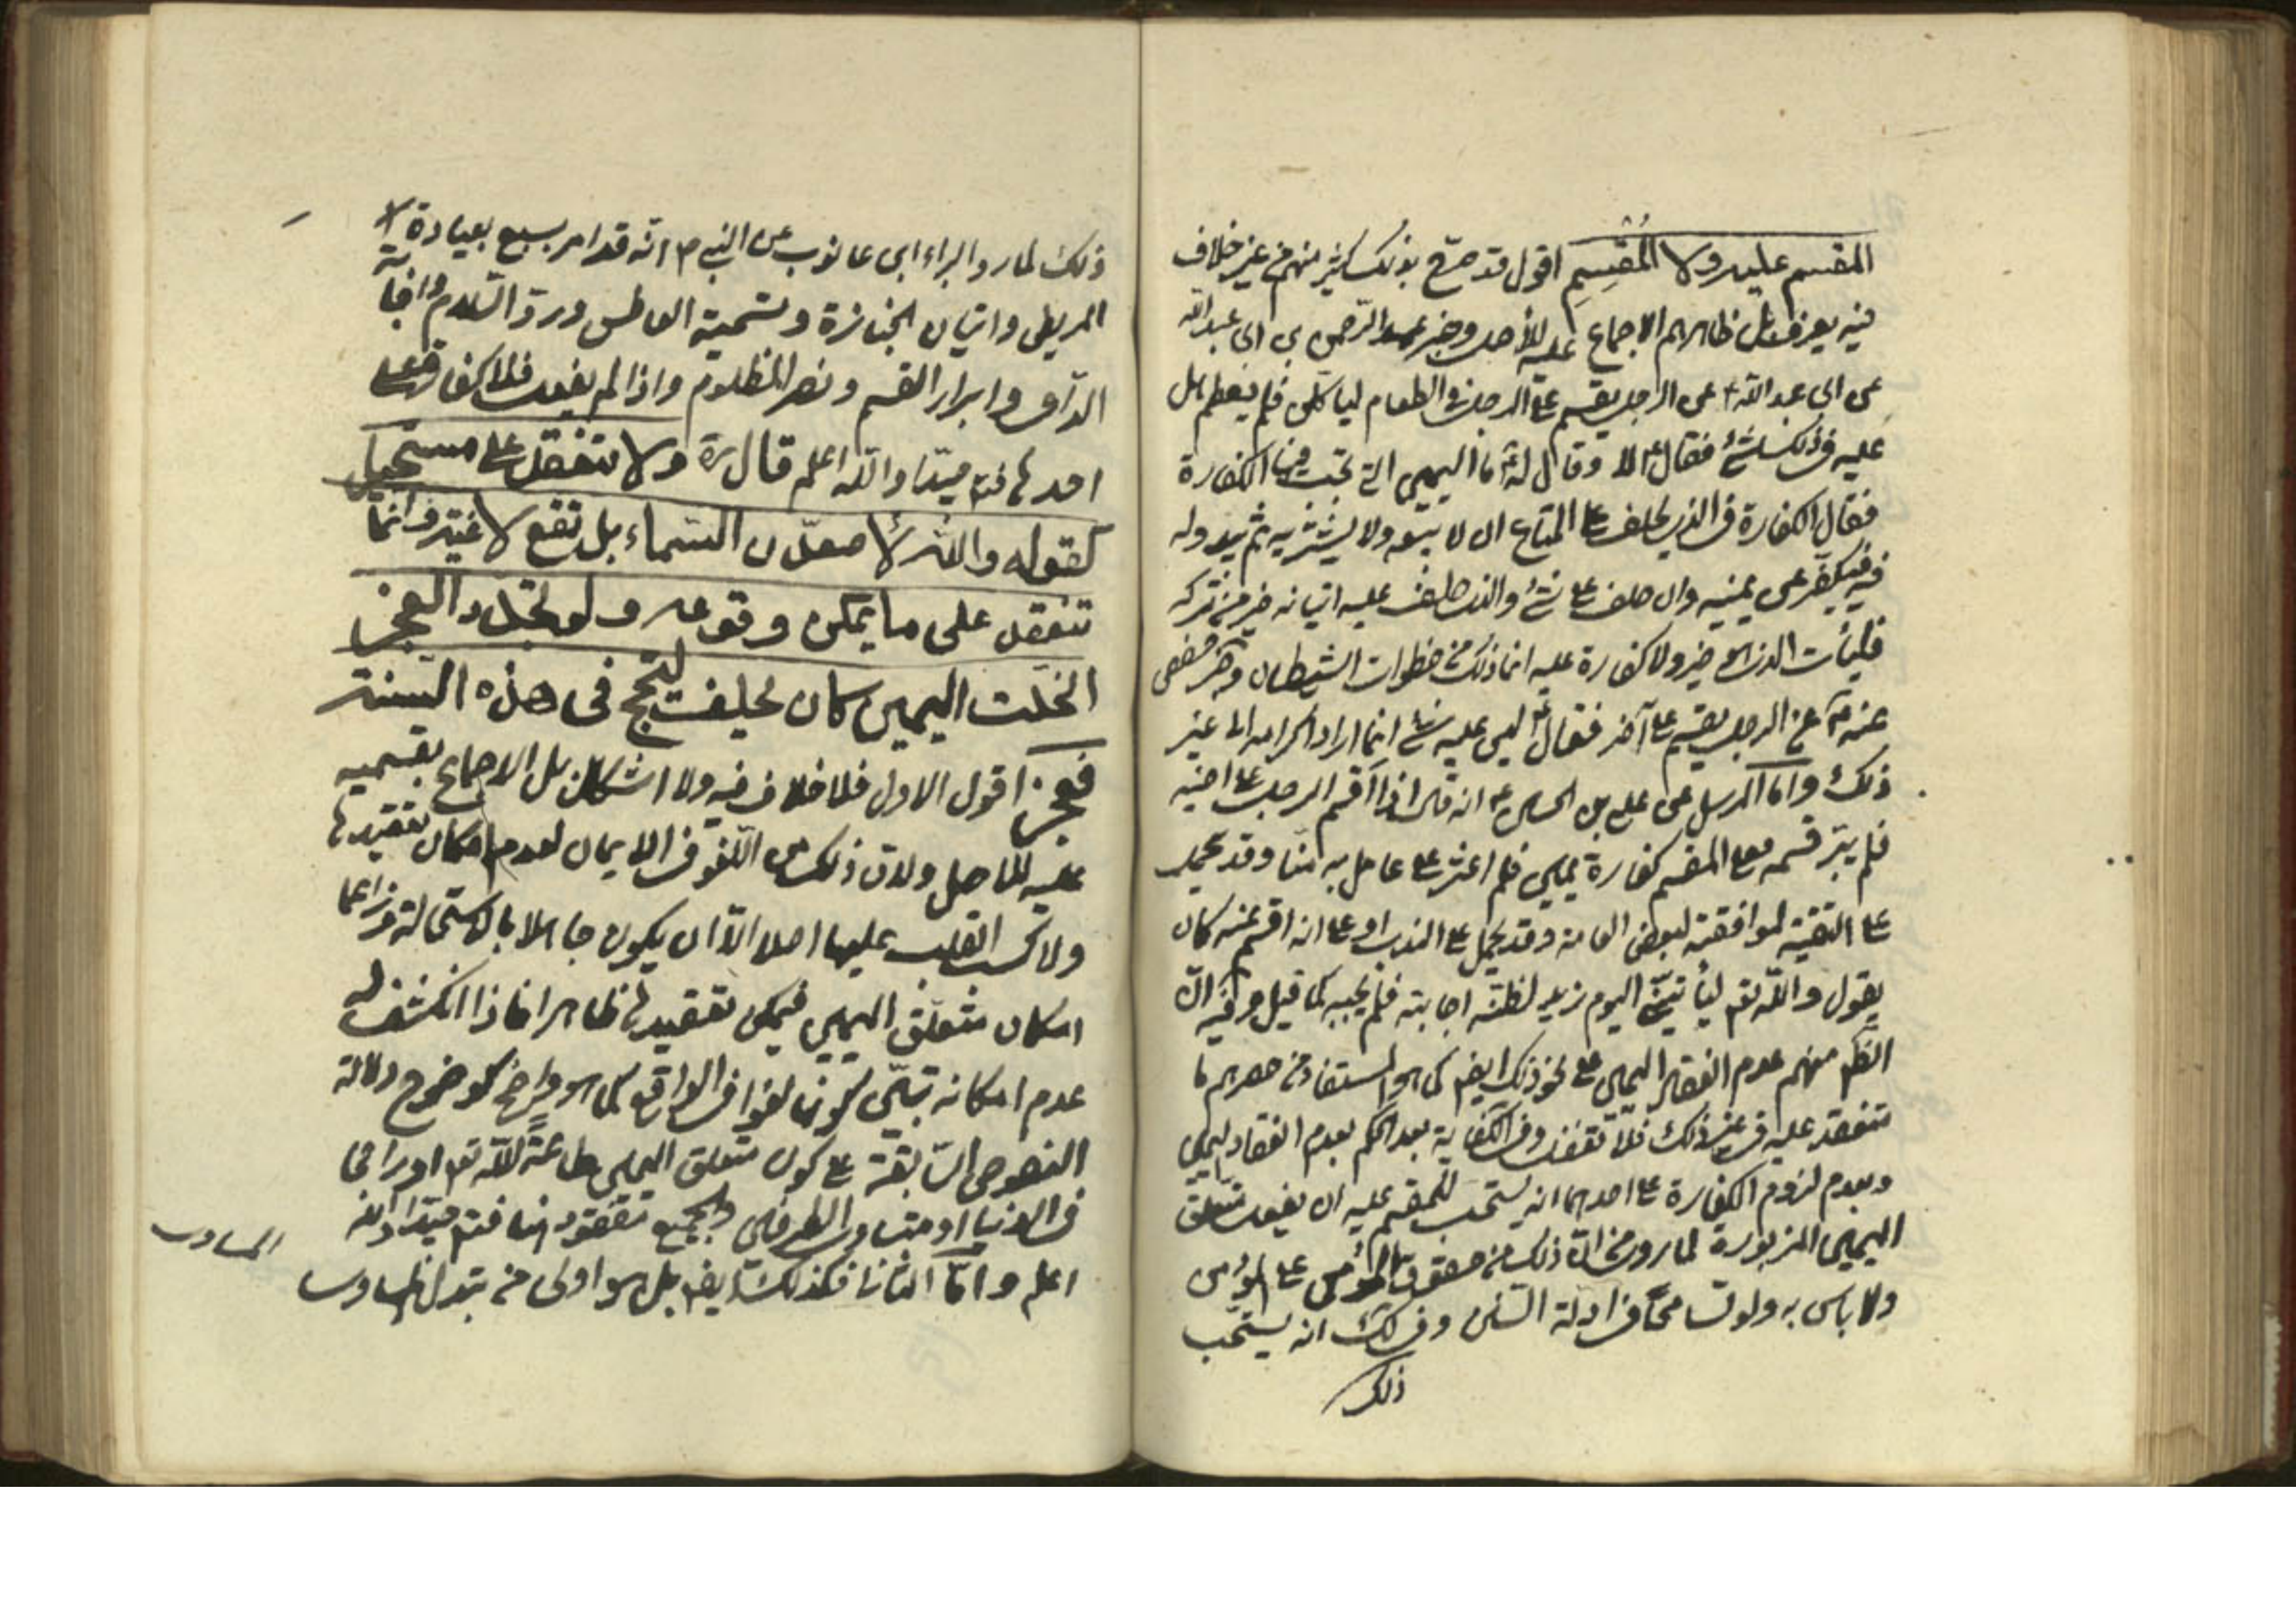 المقسم عليه ولا المُقسِمِ اقول قد صرّح بذلك كثير منهم من غير خلاف
فيه يعرف بل ظاهرهم الاجماع عليه للأصل وخبر عبد الرّحمن بن ابى عبد الله
عن ابى عبد الله ع عن الرجل يقسم على الرجل فى الطعام لياكل فلم يطعم هل
عليه فى ذلك شئ فقال لا وقال له ما اليمين التى تجب فيها الكفارة
فقال الكفارة فى الذى يحلف على المتاع ان لا يبيعه ولا يشتريه ثم يبدو له
فيه فيكفّر عن يمينه وان حلف على شئ والذى حلف عليه اتيانه خير من تركه
فليأت الذى هو خير ولا كفارة عليه انما ذلك من خطوات الشيطان وخبر حفص
عنه ع عن الرجل يقسم على آخر فقال ع ليس عليه شئ انما اراد اكرامه الى غير
ذلك واما المرسل عن على بن الحسين ع انه قال اذا اقسم الرجل على اخيه
فلم يبرّ قسمه فعلى المقسم كفارة يمين فلم اعثر على عامل به منّا وقد يحمل
على التقيّة لموافقته لبعض العامة وقد يحمل على الندب او على انه اقسم عنه كان
يقول والله تعم ليأتينّى اليوم زيد لظنّه اجابته فلم يجبه كما قيل وفيه انّ
الظم منهم عدم انعقاد اليمين على نحو ذلك ايضم كما هو المستفاد من حصرهم ما
تنعقد عليه فى غير ذلك فلا تغفل وفى الكفاية بعد الحكم بعدم انعقاد اليمين
وبعدم لزوم الكفارة على احدهما انه يستحب للمقسم عليه ان يفعل متعلق
اليمين المزبورة لما روى من انّ ذلك من حقوق المؤمن على المؤمن
ولا باس به ولو تسامحًا فى ادلة السنن وفى لك انه يستحب
ذلك
ذلك لما رواه البراء ابن عازب عن النبى ص انّه قد امر بسبع بعيادة
المريض واتيان الجنازة وتسمية العاطس وردّ السّلام واجابة
الداعى وابرار القسم ونصر المظلوم واذا لم يفعل فلا كفارة على
احدهما فتم جيّدا والله اعلم قال رة ولا تنعقد على مستحيل
كقوله والله لأصعدّن السماء بل تقع لاغية وانّما
تنعقد على ما يمكن وقوعه ولو تجدّد العجز
انحلّت اليمين كان يحلف ليحجّ فى هذه السّنة
فعجز اقول الاول فلا خلاف فيه ولا اشكال بل الاجماع بقسميه
عليه للاصل ولان ذلك من اللّغو فى الايمان لعدم امكان تعقيدها
ولا كسب القلب عليها اصلا الاّ ان يكون جاهلا بالاستحالة وزاعما
امكان متعلّق اليمين فيمكن تعقيدها ظاهرا فاذا انكشف له
عدم امكانه تبيّن كونها لغوا فى الواقع كما هو واضح كوضوح دلالة
النصوص السّابقة على كون متعلق اليمين طاعةً لله تعم او راجحا
فى الدنيا او متساوى الطرفين والجميع مفقود هنا فتم جيّدا والله
اعلم وامّا الثانى فكذلك ايضم بل هو اولى من تبدل المساوى
المساوى